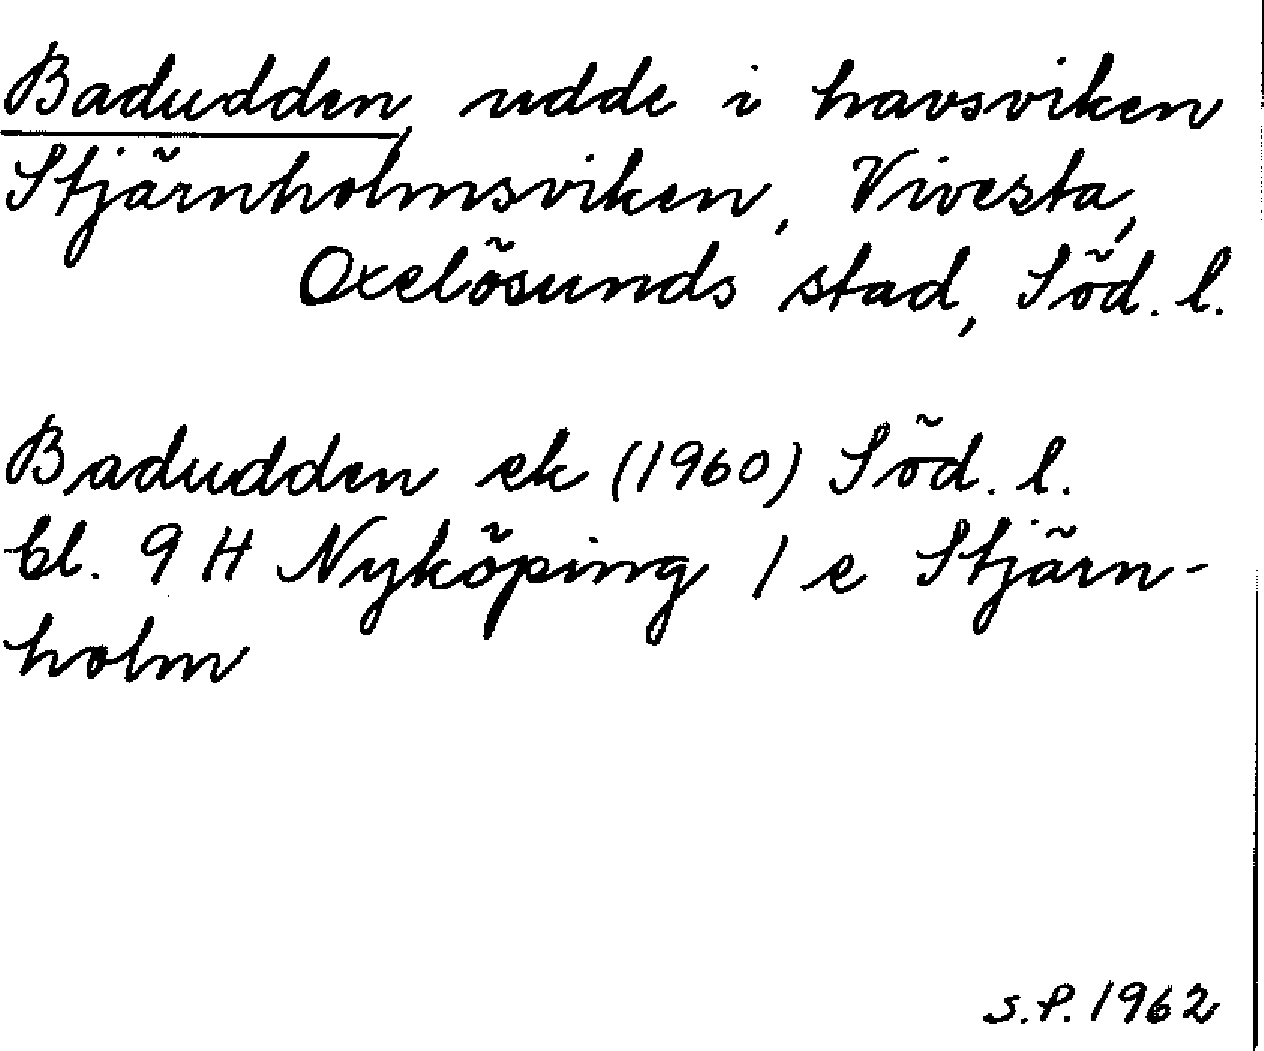 Badudden, udde i havsviken
Stjärnholmsviken, Vivesta,
Oxelösunds stad, Söd. l.
Badudden ek (1960) Söd. l.
bl. 9 H Nyköping 1 e Stjärn-
holm
S.P. 1962